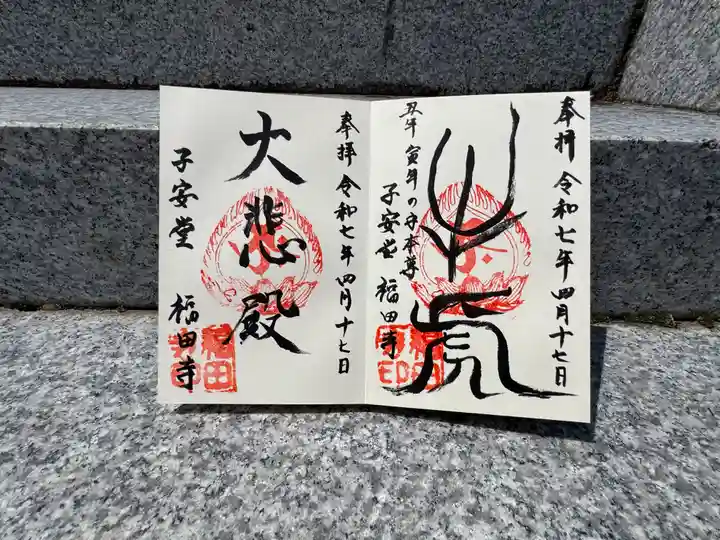 奉拝 令和七年四月十七日
牛虎
丑年 寅年の守本尊
子安堂 福田寺
福田寺印
奉拝 令和七年四月十七日
大悲殿
子安堂 福田寺
福田寺印